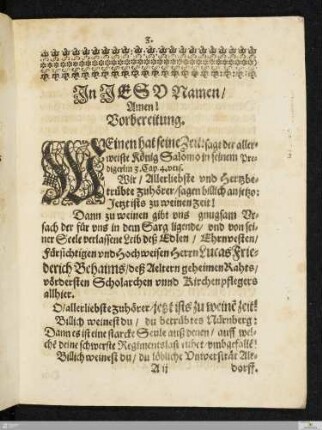 2.
In JESV Namen/
Amen!
Vorbereitung.
WEinen hat seine Zeit: sagt der aller-
weiste König Salomo in seinem Pre-
diger im 3. Cap. 4. vers.
Wir/ Allerliebste und Hertzbe-
trübte Zuhörer/ sagen billich anjetzo:
Jetzt ists zu weinen Zeit!
Dann zu weinen gibt uns gnugsam Vr-
sach der für uns in dem Sarg ligende/ und von sei-
ner Seele verlassene Leib deß Edlen/ Ehrnvesten/
Fürsichtigen und Hochweisen Herrn Lucas Frie-
derich Behaims/ deß Aeltern geheimen Rahts/
vördersten Scholarchen unnd Kirchenpflegers
allhier.
O/ allerliebste Zuhörer/ jetzt ists zu weinē zeit!
Billich weinest du/ du betrübtes Nürnberg:
Dann es ist eine starcke Seule auß denen/ auff wel-
che deine schwerste Regimentslast ruhet/ umbgefallē!
Billich weinest du/ du löbliche Vniversität Alt-
A ij dorff.